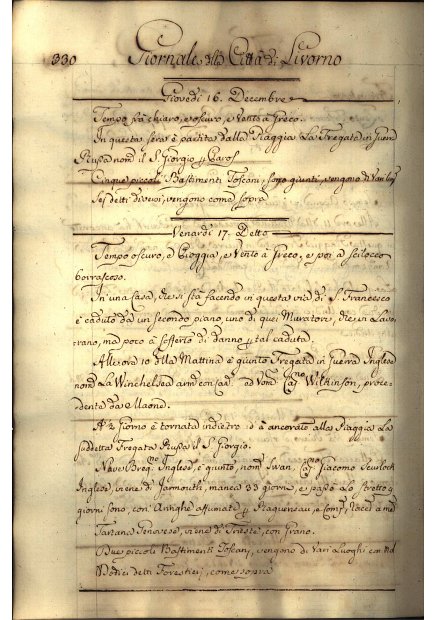 330 Giornale della Città di Livorno
Giovedi 16. Decembre
Tempo frà chiaro, e oscuro, e Vento à Greco.
In questa sera è partita dalla Piaggia La Fregata in Guerra
Russa nom: il S. Giorgio
Cinque piccoli Bastimenti Toscani, sono giunti, vengono di Vari
Sei detti diversi, vengono come sopra
Venardi 17. Detto
Tempo oscuro, e Pioggia, e Vento à Greco, e poi à Scilocco
borrascoso.
In una Casa, che si stà facendo in questa via di S. Francesco
è caduto da un secondo piano uno di quei Muratori, che si Lavo-
rano, ma poco à sofferto di danno tal caduta.
Alle ora 10 della Mattina è giunto Fregata in Guerra Inglese
nom: La Winchelsea Wilkinson, proce-
dente da Maone.
A Giorno è tornata indietro, è à ancorato alla Piaggia La
suddetta Fregata Russa il S. Giorgio.
Nave Inglese, è giunto, nom: Swan, Giacomo
Inglese, viene di Jarmouth, manca 33 giorni, e passò Lo stretto 9
giorni sono, con Aringhe affumate
Tartana Genovese, viene di Trieste, con grano.
Due piccoli Bastimenti Toscani, vengono da Vari Luoghi
Dodici detti Forestieri, come sopra